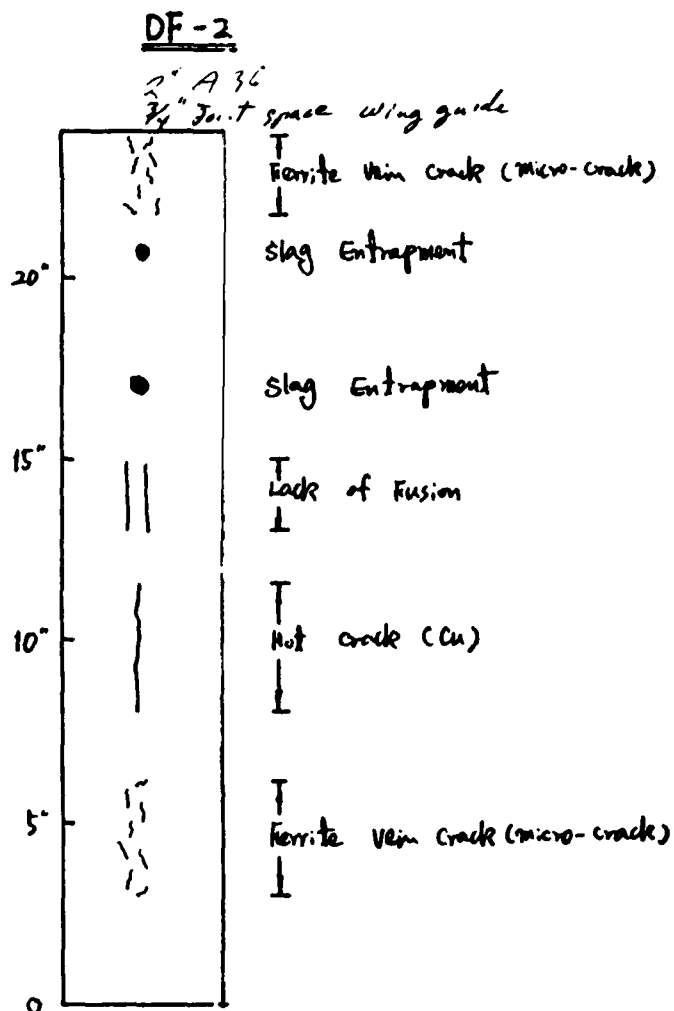 DF-2
2" A 36
3/4" Joint space wing guide
Ferrite vein crack (micro-crack)
Slag Entrapment
20"
Slag Entrapment
15"
Lack of Fusion
10"
Hot crack (Cu)
5"
Ferrite vein crack (micro-crack)
0